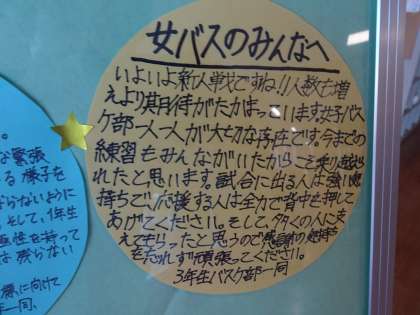 女バスのみんなへ
いよいよ新人戦ですね!!人数も増
えより期待がたかまっています。女子バス
ケ部一人一人が大切な存在です。今までの
練習もみんながいたからこそ乗り越えら
れたと思います。試合に出る人は強い気
持ちで、応援する人は全力で背中を押して
あげてください。そして、多くの人に支
えてもらったと思うので感謝の気持ち
を忘れず頑張ってください。
3年生バスケ部一同
な緊張
る様子を
らないように
そして、1年生
極性を持って
は残らない
様に向けて
一同、